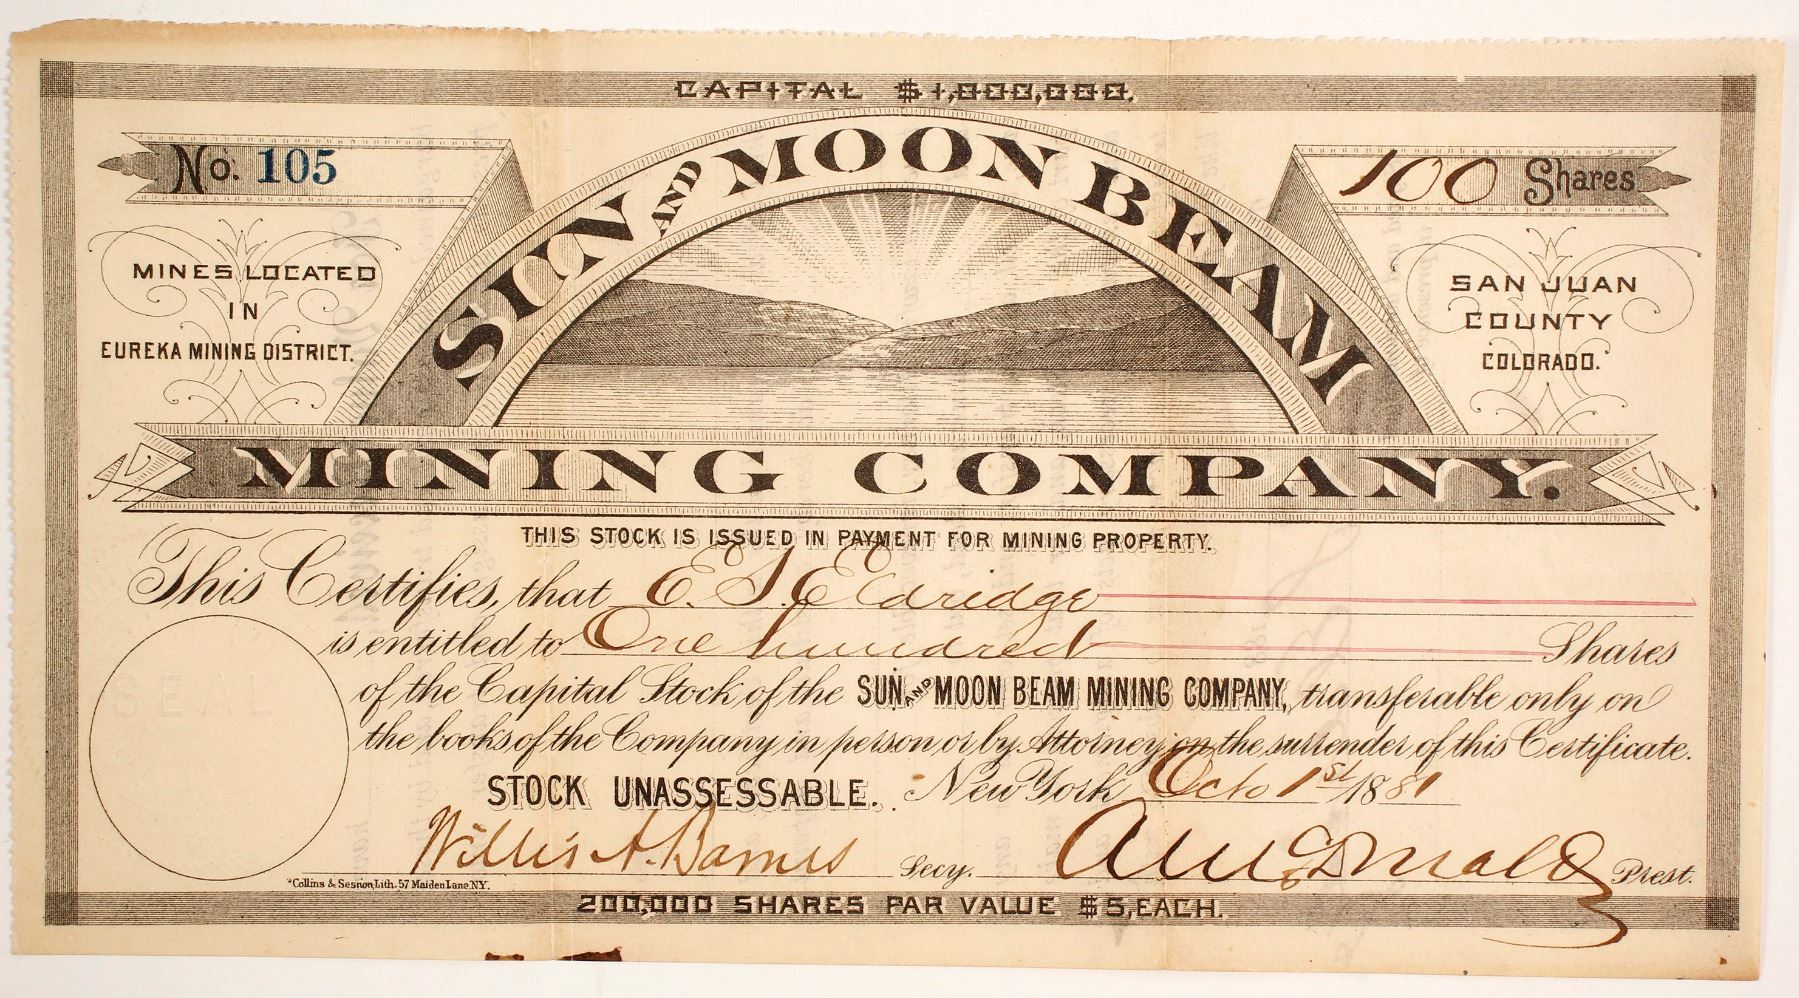 CAPITAL $1,000,000.
No. 105
100 Shares
SUN AND MOON BEAM
MINES LOCATED
IN
EUREKA MINING DISTRICT.
SAN JUAN
COUNTY
COLORADO.
MINING COMPANY.
THIS STOCK IS ISSUED IN PAYMENT FOR MINING PROPERTY.
This Certifies, that E. S. Eldridge
is entitled to One hundred Shares
of the Capital Stock of the SUN AND MOON BEAM MINING COMPANY, transferable only on
the books of the Company in person or by Attorney on the surrender of this Certificate.
SEAL
STOCK UNASSESSABLE. New York Octo 1st 1881
Willis A. Barnes Secy. McDonald Prest.
Collins & Sesnon, Lith. 57 Maiden Lane, N.Y.
200,000 SHARES PAR VALUE $5, EACH.